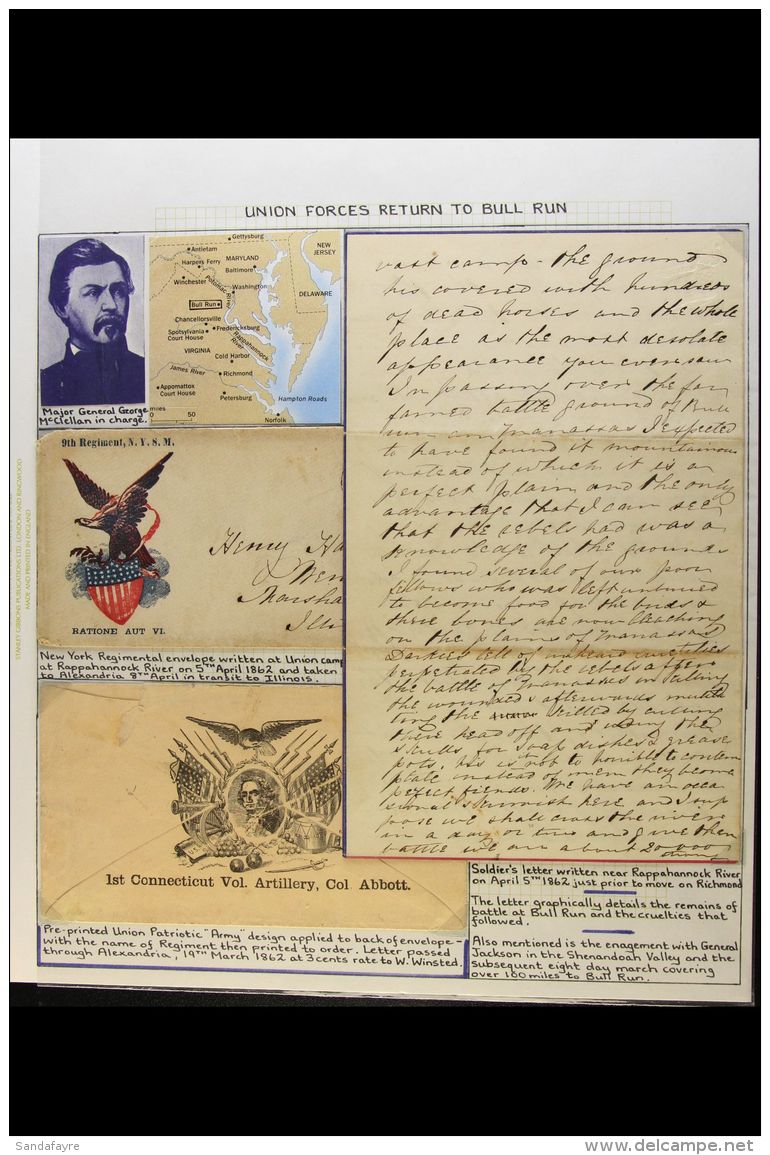 UNION FORCES RETURN TO BULL RUN
Major General George
McClellan in charge.
Gettysburg
Antietam
Harpers Ferry
MARYLAND
Baltimore
NEW
JERSEY
Winchester
Potomac River
Washington
DELAWARE
Bull Run
Chancellorsville
Spotsylvania
Court House
Fredericksburg
Rappahannock
River
VIRGINIA
Cold Harbor
James River
Richmond
Appomattox
Court House
Petersburg
Hampton Roads
Norfolk
miles
0 50
9th Regiment, N. Y. S. M.
RATIONE AUT VI.
Henry
Illi
New York Regimental envelope written at Union camp
at Rappahannock River on 5TH April 1862 and taken
to Alexandria 8TH April in transit to Illinois.
1st Connecticut Vol. Artillery, Col Abbott.
Pre-printed Union Patriotic "Army" design applied to back of envelope -
with the name of Regiment then printed to order. Letter passed
through Alexandria, 19TH March 1862 at 3 cents rate to W. Winsted.
vast camp - the ground
his covered with hundreds
of dead horses and the whole
place as the most desolate
appearance you ever saw
In passing over the far
famed battle ground of Bull
run an manassas I expected
to have found it mountainous
instead of which it is a
perfect plain and the only
advantage that I can see
that the rebels had was a
knowledge of the grounds
I found several of our poor
fellows who was left unburied
to become food for the birds &
there bones are now bleaching
on the plains of Manassas
perpetrated by the rebels after
the battle of Manassas in killing
the wounded & afterwards mutila
ting the killed by cutting
there head off and using the
skulls for soap dishes & grease
pots. his is not to horrible to contem
plate instead of men they become
perfect fiends. We have an occa
sional skirmish here and I sup
pose we shall cross the river
in a day or two and give them
battle we are about 20 000
Soldier's letter written near Rappahannock River
on April 5TH 1862 just prior to move on Richmond
The letter graphically details the remains of
battle at Bull Run and the cruelties that
followed.
Also mentioned is the enagement with General
Jackson in the Shenandoah Valley and the
subsequent eight day march covering
over 100 miles to Bull Run.
STANLEY GIBBONS PUBLICATIONS LTD. LONDON AND RINGWOOD
MADE AND PRINTED IN ENGLAND
Sandafayre
delcampe.net